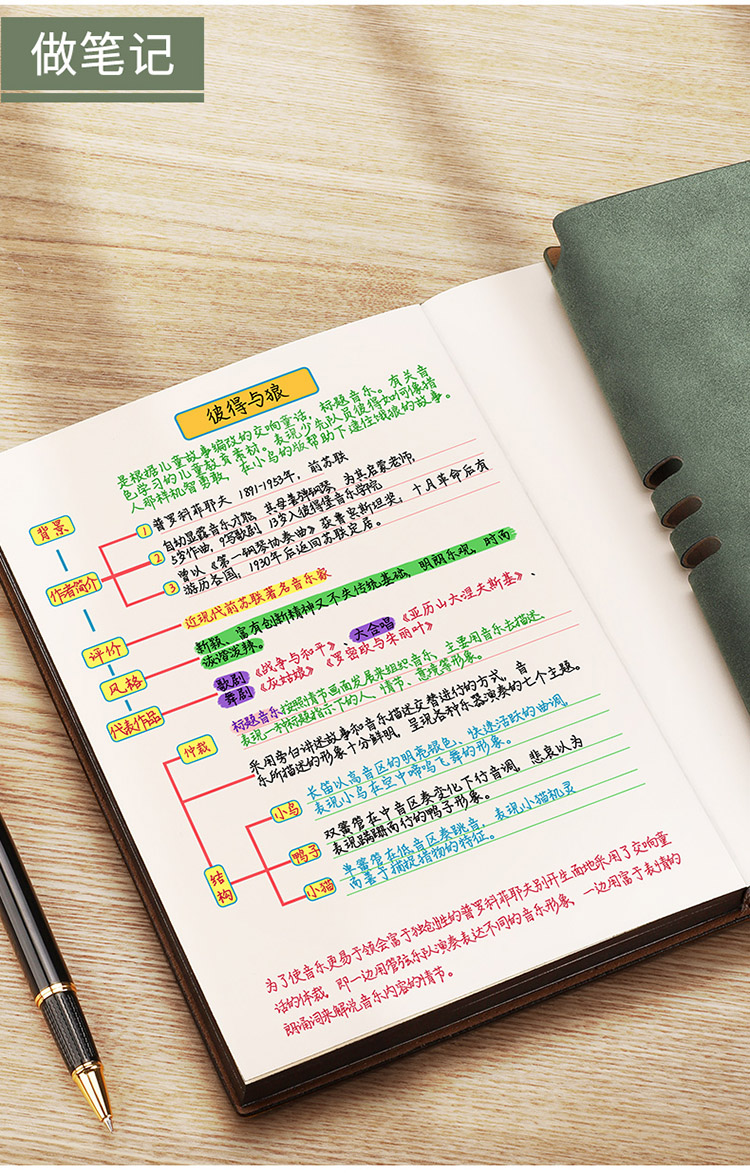 做笔记
彼得与狼
是根据儿童故事编改的交响童话，标题音乐。有关音
色学习的儿童教育素材。表现少先队员彼得如何像猎
人那样机智勇敢，在小鸟的版帮助下逮住饿狼的故事。
背景
作者简介
①普罗科菲耶夫 1891-1953年，前苏联
②自幼显露音乐才能，其母善弹钢琴，为其启蒙老师，
5岁作曲，9写歌剧 13岁入彼得堡音乐学院
③曾以《第一钢琴协奏曲》获鲁宾斯坦奖；十月革命后有
游历各国，1930年后返回苏联定居。
评价
近现代前苏联著名音乐家
风格
新颖、富有创新精神又不失传统基础，明朗乐观，时而
诙谐泼辣。
代表作品
歌剧《战争与和平》、大合唱《亚历山大涅夫斯基》、
舞剧《灰姑娘》《罗密欧与朱丽叶》
标题音乐按照情节画面发展来组织音乐，主要用音乐去描述、
表现一种标题指示下的人、情节、意境等形象。
仲裁
采用旁白讲述故事和音乐描述交替进行的方式，音
乐所描述的形象十分鲜明，呈现各种乐器演奏的七个主题。
结构
小鸟
长笛以高音区的明亮银色、快速活跃的曲调，
表现小鸟在空中啼鸣飞舞的形象。
鸭子
双簧管在中音区奏变化下行音调，悲哀以为
表现蹒跚而行的鸭子形象。
小猫
单簧管在低音区奏跳音，表现小猫机灵
而善于捕捉猎物的特征。
为了使音乐更易于领会富于独创胜的普罗科菲耶夫别开生面地采用了交响童
话的体裁，即一边用管弦乐队演奏表达不同的音乐形象，一边用富于表情的
朗诵词来解说音乐内容的情节。